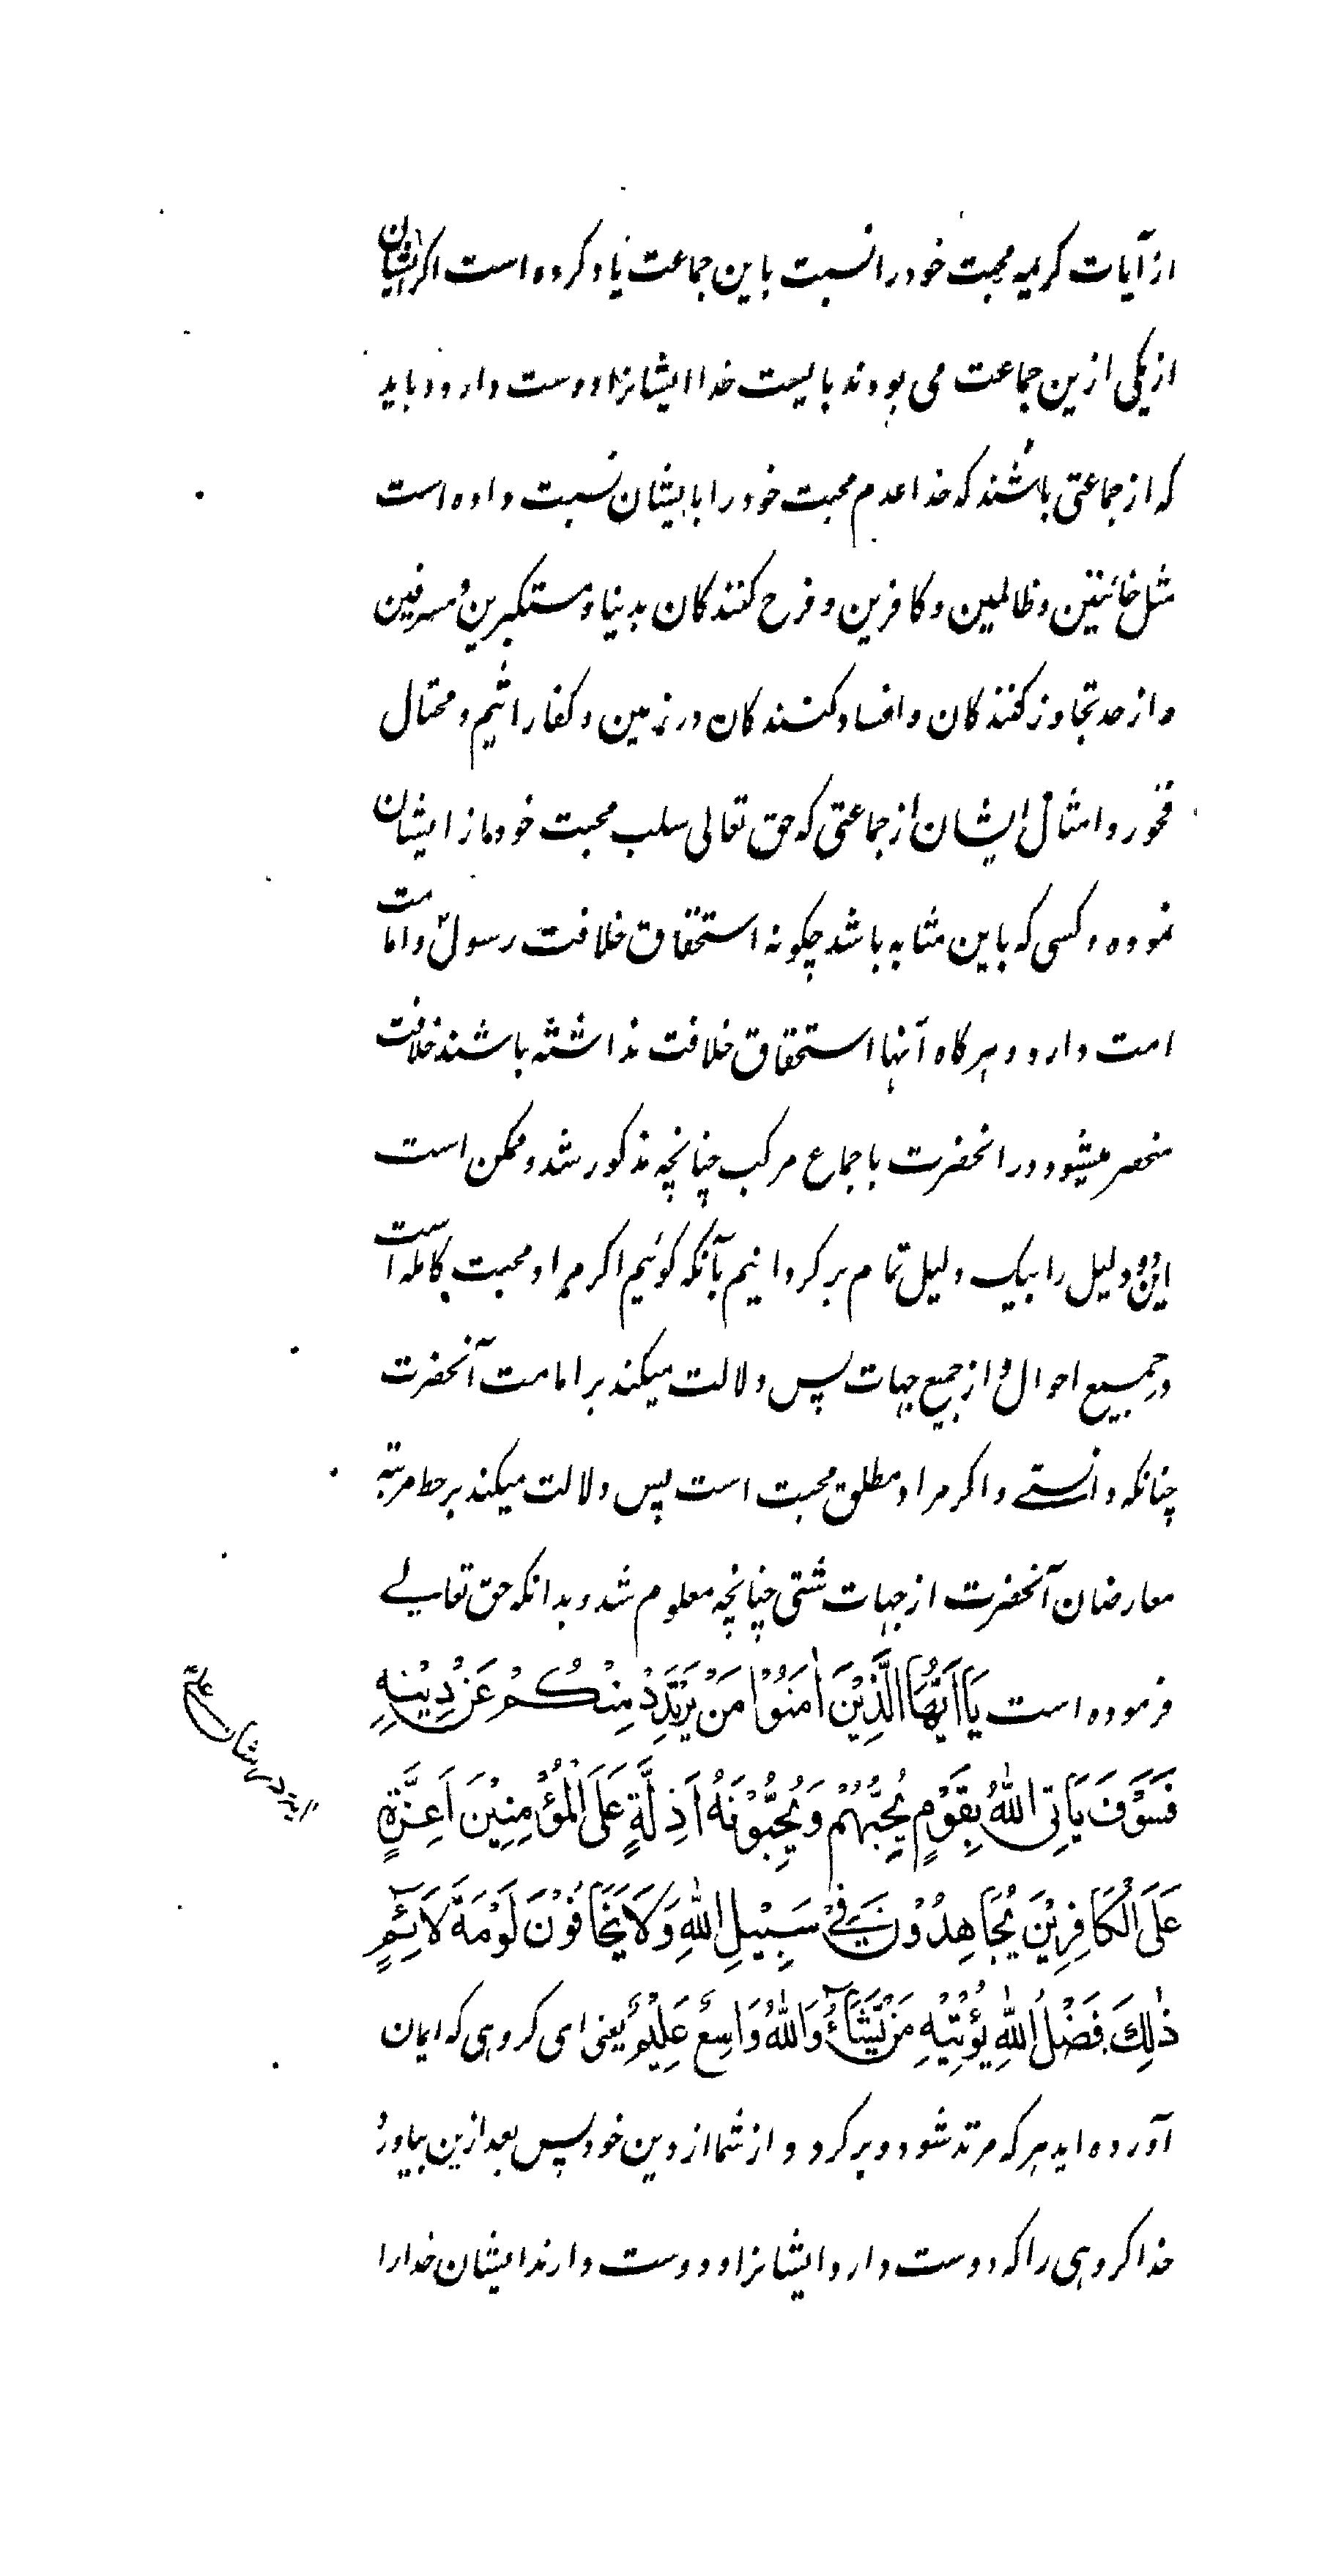 از آیات کریمه محبت خود را نسبت باین جماعت یاد کرده است اکر ایشان
از یکی ازین جماعت می بودند بایست خدا ایشانرا دوست دارد و باید
که از جماعتی باشند که خدا عدم محبت خود را بایشان نسبت داده است
مثل خائنین و ظالمین و کافرین و فرح کنندکان بدنیا و مستکبرین و مسرفین
و از حد تجاوز کنندکان و افساد کنندکان در زمین و کفار اثیم و مختال
فخور و امثال ایشان از جماعتی که حق تعالی سلب محبت خود از ایشان
نموده و کسی که باین مثابه باشد چکونه استحقاق خلافت رسول و امامت
امت دارد و هرکاه آنها استحقاق خلافت نداشته باشند خلافت
منحصر میشود در انحضرت باجماع مرکب چنانچه مذکور شد و ممکن است
این دو دلیل را بیک دلیل تمام برکردانیم بآنکه کوئیم اکر مراد محبت کامله است
در جمیع احوال و از جمیع جهات پس دلالت میکند بر امامت آنحضرت
چنانکه دانستے و اکر مراد مطلق محبت است پس دلالت میکند بر حط مرتبه
معارضان آنحضرت از جهات شتی چنانچه معلوم شد و بدانکه حق تعالے
فرموده است یَا اَیُّهَا الَّذِیْنَ اٰمَنُوْا مَنْ یَرْتَدِدْ مِنْکُمْ عَنْ دِیْنِهِ
فَسَوْفَ یَاَتِی اللّٰهُ بِقَوْمٍ یُحِبُّهُمْ وَ یُحِبُّوْنَهُ اَذِلَّةٍ عَلَی الْمُؤْمِنِیْنَ اَعِزَّةٍ
عَلَی الْکَافِرِیْنَ یُجَاهِدُوْنَ فِیْ سَبِیْلِ اللّٰهِ وَلَا یَخَافُوْنَ لَوْمَةَ لَآئِمٍ
ذٰلِکَ فَضْلُ اللّٰهِ یُؤْتِیْهِ مَنْ یَّشَآءُ وَاللّٰهُ وَاسِعٌ عَلِیْمٌ یعنی ای کروهی که ایمان
آورده اید هر که مرتد شود و برکردد از شما از دین خود پس بعد ازین بیاورد
خدا کروهی را که دوست دارد ایشانرا و دوست دارند ایشان خدا را